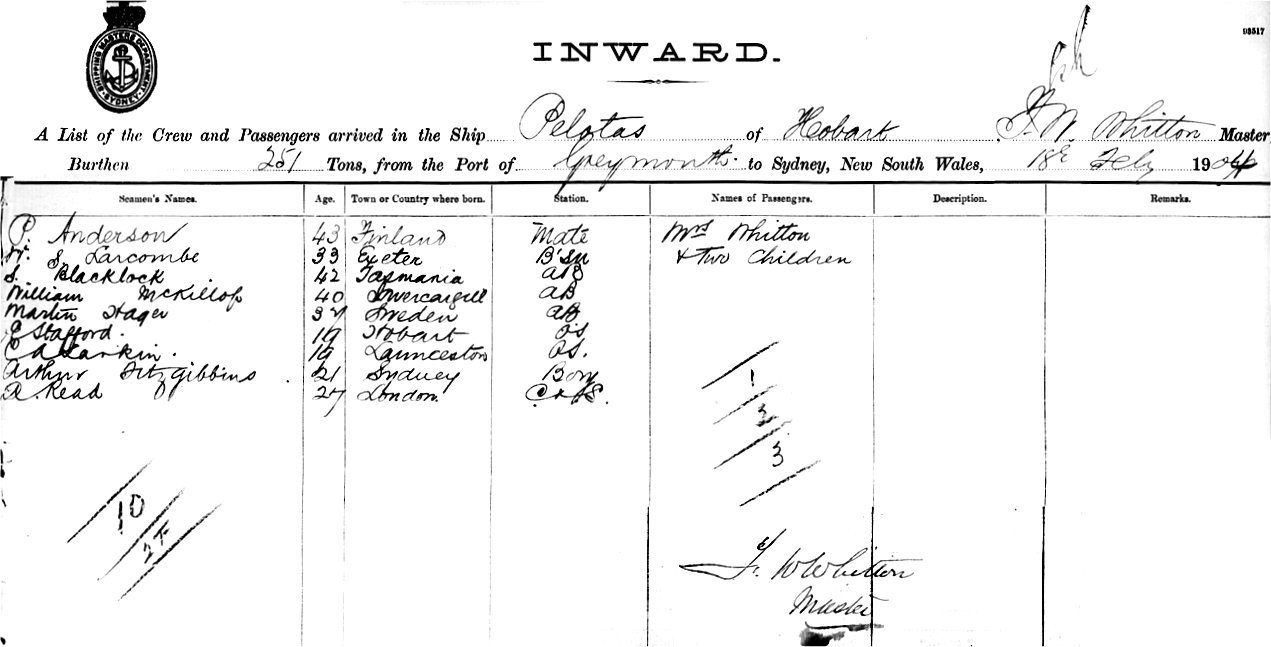 SHIPPING MASTERS DEPARTMENT SYDNEY
03517
INWARD.
A List of the Crew and Passengers arrived in the Ship Pelotas of Hobart F. W. Whitton Master
Burthen 251 Tons, from the Port of Greymouth to Sydney, New South Wales, 18th Feby 1904
Seamen's Names. Age. Town or Country where born. Station. Names of Passengers. Description. Remarks.
P Anderson 43 Finland Mate Mrs Whitton
W. S. Larcombe 33 Exeter B'sn & Two Children
S. Blacklock 42 Tasmania AB
William McKillop 40 Invercargill AB
Martin Hager 37 Sweden AB
E Stafford. 19 Hobart OS
E A Larkin. 19 Launceston OS.
Arthur Fitzgibbins 21 Sydney Boy
R. Read 27 London. C & S.
1
2
3
10
F. W Whitton
Master